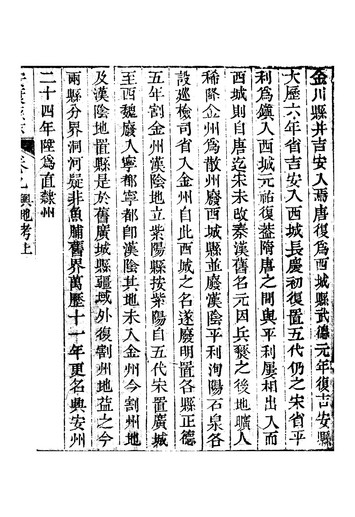 金川縣并吉安入焉唐復爲西城縣武德元年復吉安縣
大歷六年省吉安入西城長慶初復置五代仍之宋省平
利爲鎮入西城元祐復蓋隋唐之間與平利屢相出入而
西城則自唐迄宋未改秦漢舊名元因兵燹之後地曠人
稀降金州爲散州廢西城縣並廢漢陰平利洵陽石泉各
設巡檢司省入金州自此西城之名遂廢明置各縣正德
五年割金州漢陰地立紫陽縣按紫陽自五代宋置廣城
至西魏廢入寧都寧都卽漢陰其地未入金州今割州地
及漢陰地置縣是於舊廣城縣疆域外復割州地益之今
兩縣分界洞河疑非魚脯舊界萬歷十一年更名興安州
二十四年陞爲直隸州
卷九輿地考上